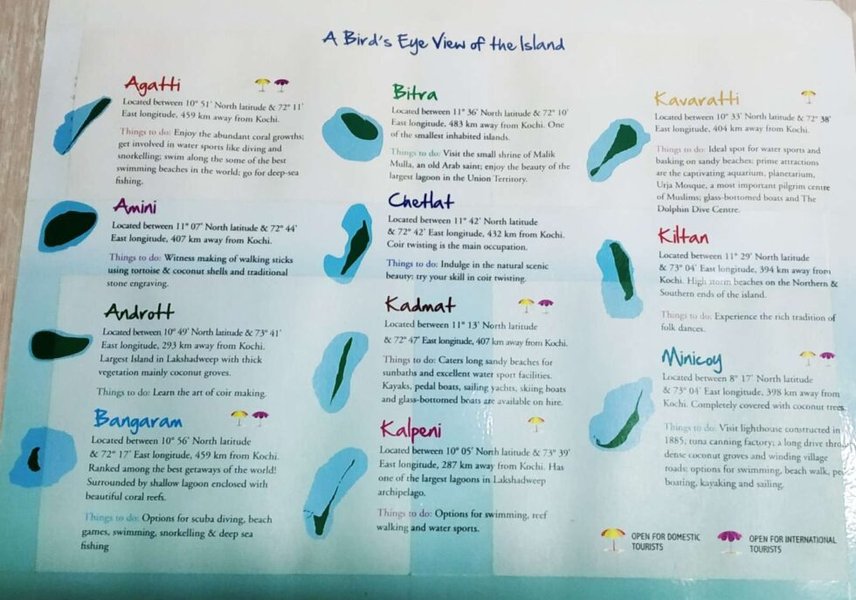 A Bird's Eye View of the Island
Agatti
Located between 10° 51' North latitude & 72° 11'
East longitude, 459 km away from Kochi.
Things to do: Enjoy the abundant coral growths;
get involved in water sports like diving and
snorkelling; swim along the some of the best
swimming beaches in the world; go for deep-sea
fishing.
Amini
Located between 11° 07' North latitude & 72° 44'
East longitude, 407 km away from Kochi.
Things to do: Witness making of walking sticks
using tortoise & coconut shells and traditional
stone engraving.
Andrott
Located between 10° 49' North latitude & 73° 41'
East longitude, 293 km away from Kochi.
Largest Island in Lakshadweep with thick
vegetation mainly coconut groves.
Things to do: Learn the art of coir making.
Bangaram
Located between 10° 56' North latitude
& 72° 17' East longitude, 459 km away from Kochi.
Ranked among the best getaways of the world!
Surrounded by shallow lagoon enclosed with
beautiful coral reefs.
Things to do: Options for scuba diving, beach
games, swimming, snorkelling & deep sea
fishing
Bitra
Located between 11° 36' North latitude & 72° 10'
East longitude, 483 km away from Kochi. One
of the smallest inhabited islands.
Things to do: Visit the small shrine of Malik
Mulla, an old Arab saint; enjoy the beauty of the
largest lagoon in the Union Territory.
Chetlat
Located between 11° 42' North latitude
& 72° 42' East longitude, 432 km away from Kochi.
Coir twisting is the main occupation.
Things to do: Indulge in the natural scenic
beauty; try your skill in coir twisting.
Kadmat
Located between 11° 13' North latitude
& 72° 47' East longitude, 407 km away from Kochi.
Things to do: Caters long sandy beaches for
sunbaths and excellent water sport facilities.
Kayaks, pedal boats, sailing yachts, skiing boats
and glass-bottomed boats are available on hire.
Kalpeni
Located between 10° 05' North latitude & 73° 39'
East longitude, 287 km away from Kochi. Has
one of the largest lagoons in Lakshadweep
archipelago.
Things to do: Options for swimming, reef
walking and water sports.
Kavaratti
Located between 10° 33' North latitude & 72° 38'
East longitude, 404 km away from Kochi.
Things to do: Ideal spot for water sports and
basking on sandy beaches; prime attractions
are the captivating aquarium, planetarium,
Urja Mosque, a most important pilgrim centre
of Muslims; glass-bottomed boats and The
Dolphin Dive Centre.
Kiltan
Located between 11° 29' North latitude
& 73° 04' East longitude, 394 km away from
Kochi. High storm beaches on the Northern &
Southern ends of the island.
Things to do: Experience the rich tradition of
folk dances.
Minicoy
Located between 8° 17' North latitude
& 73° 04' East longitude, 398 km away from
Kochi. Completely covered with coconut trees.
Things to do: Visit lighthouse constructed in
1885; tuna canning factory; a long drive throu
dense coconut groves and winding village
roads; options for swimming, beach walk, pe
boating, kayaking and sailing.
OPEN FOR DOMESTIC
TOURISTS
OPEN FOR INTERNATIONAL
TOURISTS